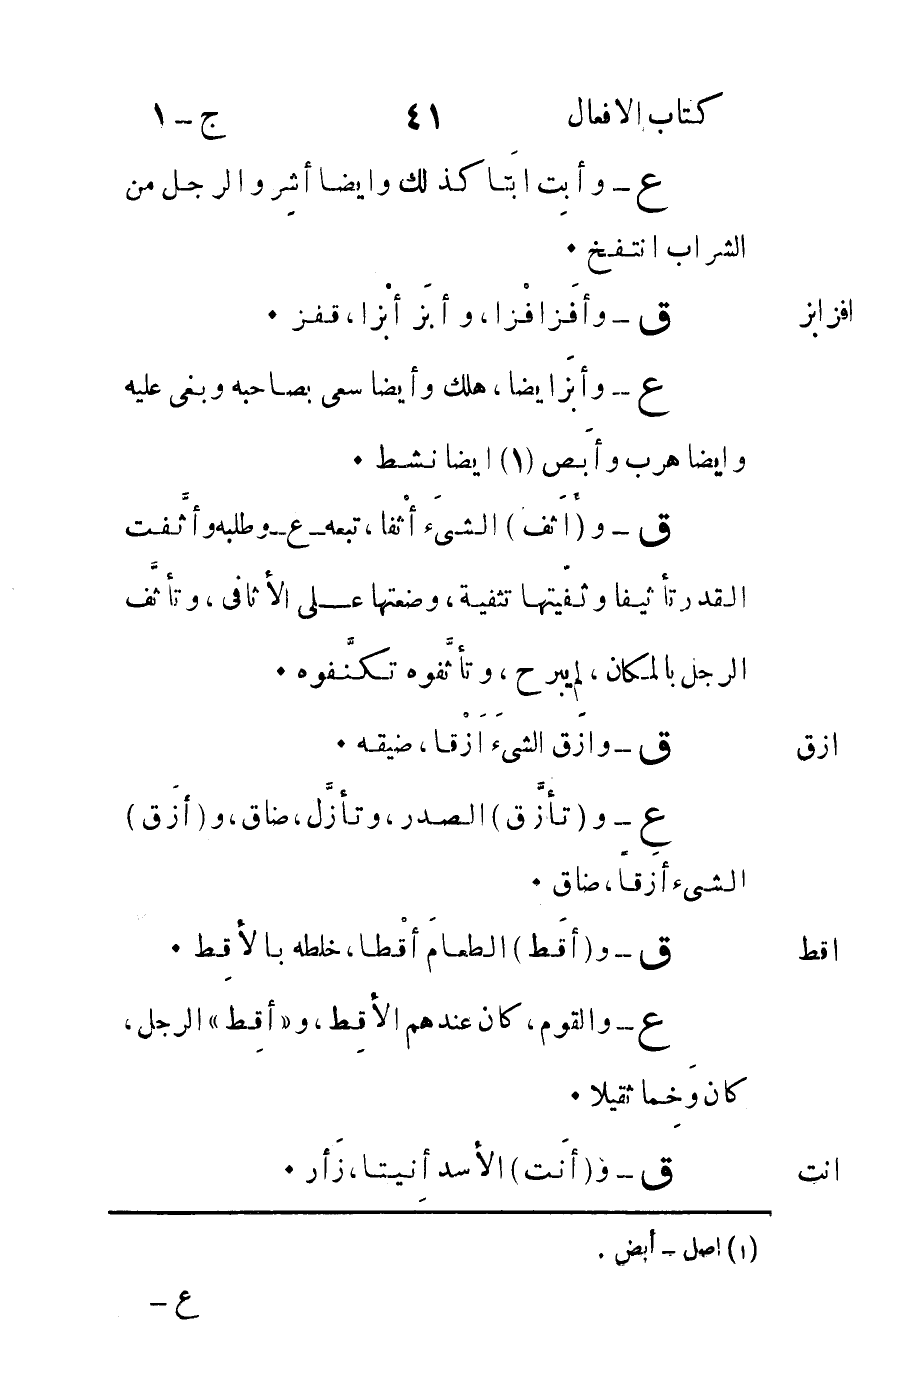 كتاب الافعال ٤١ ج – ١
ع – وأبِت ابَتا كذلك وايضا أشِر والرجل من
الشراب انتفخ •
افز ابز ق – وأفَز افْزا، وأبَز أبْزا، قفز •
ع – وأبَزا يضا، هلك وأيضا سعى بصاحبه وبغى عليه
وايضا هرب وأبَص (١) ايضا نشط •
ق – و (أثَف) الشىءَ أثْفا، تبعه – ع – وطلبه وأثَّفت
القدر تأثيفا وثفّيتها تثفية، وضعتها على الأثافى، وتأثَّف
الرجل بالمكان، لم يبرح، وتأثَّفوه تكنَّفوه •
ازق ق – وازَق الشىءَ اَزْقا، ضيقه •
ع – و (تأزَّق) الصدر، وتأزَّل، ضاق، و (أزَق)
الشىء أزَقا، ضاق •
اقط ق – و (أقَط) الطعامَ أقْطا، خلطه بالأقِط •
ع – والقوم، كان عندهم الأقِط، و«أقِط» الرجل،
كان وَخِما ثقيلا •
انت ق – و (أنَت) الأسد أنِيتا، زَأر •
(١) اصل – أبض .
ع –